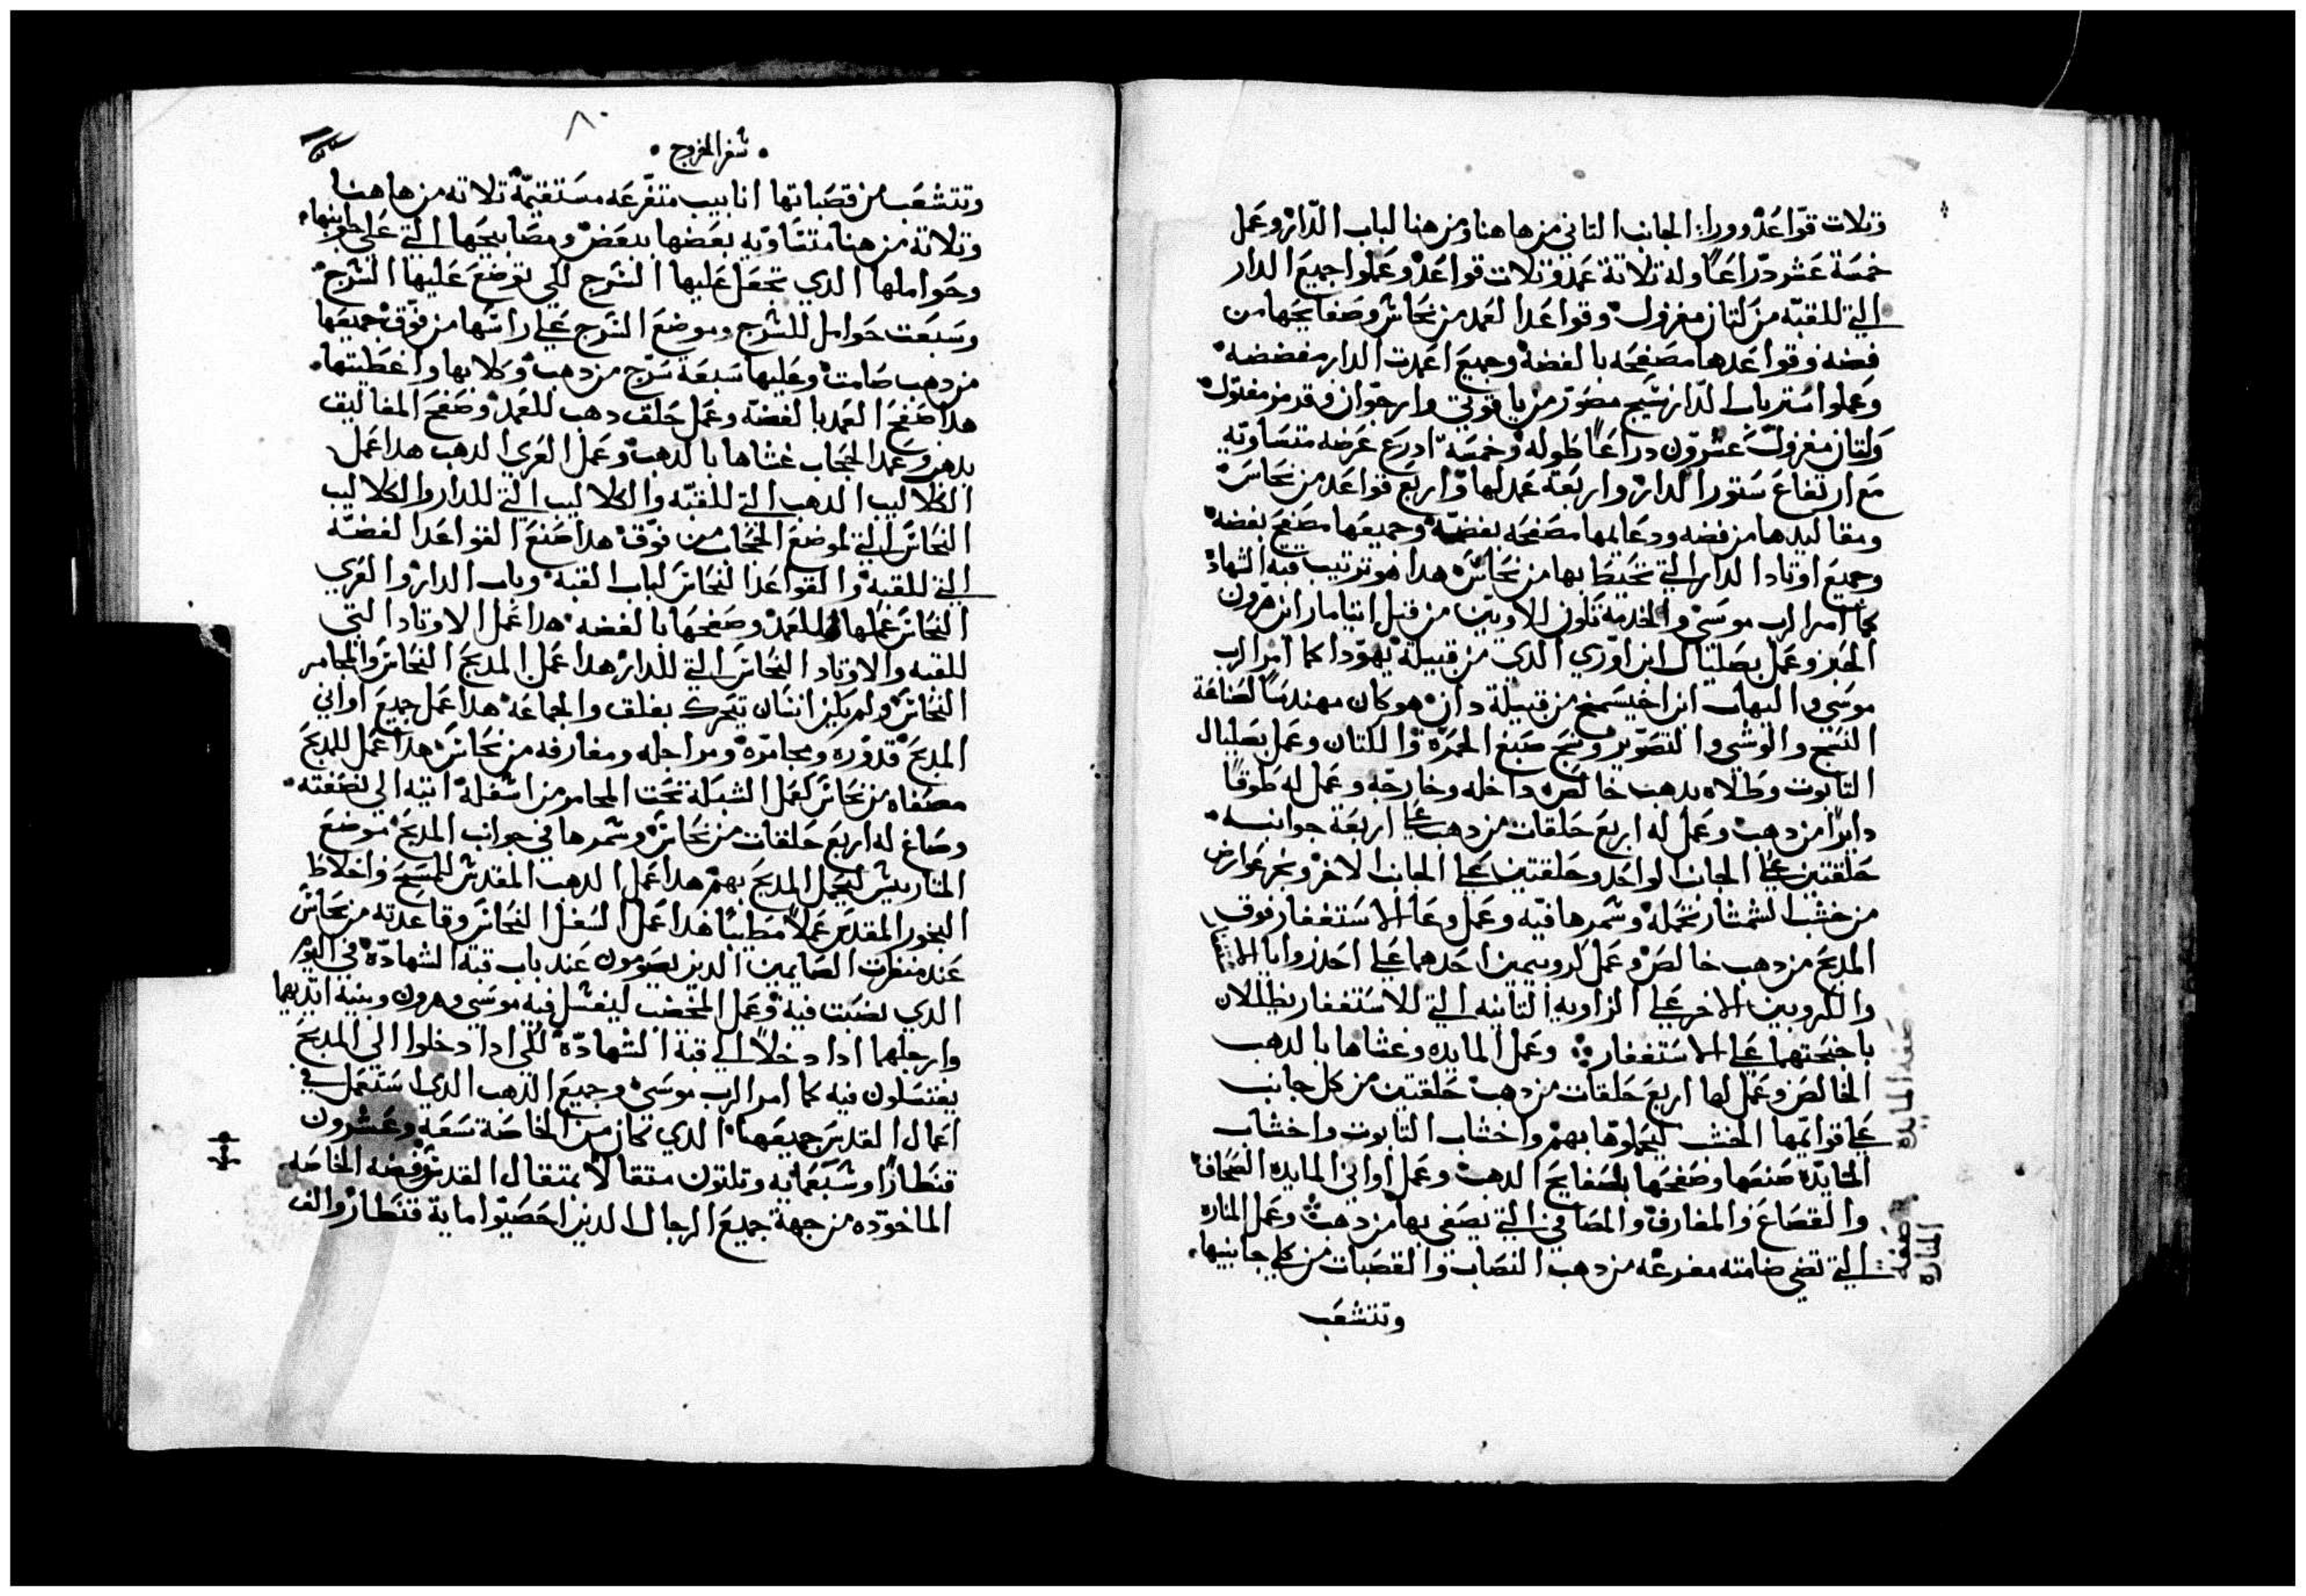 وتلات قواعد وورا الجانب التاني من هاهنا ومن هنا لباب الدار وعمل
خمسة عشر دراعًا وله تلاتة عمد وتلات قواعد وعملوا جميع الدار
التي للقبه من كتان مغزول وقواعد العمد من نحاس وصفايحها من
فضه وقواعدها مصفحه بالفضه وجميع اعمدت الدار مفضضه
وعملوا ستر باب الدار نسيج مصور من ياقوتي وارجوان وقرمز مفتول
وكتان مغزول عشرون دراعًا طوله وخمسه ادرع عرضه متساويه
مع ارتفاع ستور الدار واربعة عمد لها واربع قواعد من نحاس
ومقاليدها من فضه ودعايمها مصفحه بفضه وجميعها مصفح بفضه
وجميع اوتاد الدار التي تحيط بها من نحاس هدا هو ترتيب قبة الشهاده
كما امر الرب موسي والخدمه تكون للاويين من قبل ايتامار ابن هرون
الحبر وعمل بصليال ابن اوري الدي من قبيلة يهودا كما امر الرب
موسي والياب ابن اخيسمخ من قبيلة دان هو كان مهندسًا لصناعة
النسج والوشي والتصوير ونسج صبغ الحمره والكتان وعمل بصليال
التابوت وطلاه بدهب خالص داخله وخارجه وعمل له طوقًا
دايرًا من دهب وعمل له اربع حلقات من دهب علي اربعة جوانبه
حلقتين علي الجانب الواحد وحلقتين علي الجانب الاخر ونجر عوارض
من خشب الشمشار تحمله وسمرها فيه وعمل وعا الاستغفار فوق
المدبح من دهب خالص وعمل كروبيمين احدهما علي احد زوايا
والكروبين الاخر علي الزاويه التانيه التي للاستغفار يظللان
باجنحتهما علي الاستغفار وعمل المايده وغشاها بالدهب
الخالص وعمل لها اربع حلقات من دهب حلقتين من كل جانب
علي قوايمها الخشب ليحملوها بهم واخشاب التابوت واخشاب
المايده صنعها وصفحها بصفايح الدهب وعمل اواني المايده الصحاف
والقصاع والمغارف والمصافي التي يصفي بها من دهب وعمل المناره
التي تضي ضامته مفرغه من دهب النصاب والقصبات من كلي جانبيها
صفة المايده
صفة المناره
وتتشعب
٨٠
سفر الخروج
وتتشعب من قصباتها انابيب متفرعه مستقيمة تلاته من هاهنا
وتلاتة من هنا متساويه بعضها ببعض ومصابيحها التي علي جوانبها
وحواملها الدي تجعل عليها السرج لكي توضع عليها السرج
وسبعت حوامل للسرج وموضع السرج علي راسها من فوق جميعها
من دهب صامت وعليها سبعة سرج من دهب وكلابها واغطيتها
هدا صفح العمد بالفضه وعمل حلق دهب للعمد وصفح المغاليق
بدهب وعمد الحجاب غشاها بالدهب وعمل العري الدهب هدا عمل
الكلاليب الدهب التي للقبه والكلاليب التي للدار والكلاليب
النحاس التي لموضع الحجاب من فوق هدا صنع القواعد الفضه
التي للقبه والقواعد النحاس لباب القبه وباب الدار والعري
النحاس عملها للعمد وصفحها بالفضه هدا عمل الاوتاد التي
للقبه والاوتاد النحاس التي للدار هدا عمل المدبح النحاس والمجامر
النحاس ولم يكن انسان يتحرك بقلق والجماعه هدا عمل جميع اواني
المدبح قدوره ومجامره ومراجله ومغارفه من نحاس هدا عمل للمدبح
مصفاه من نحاس كعمل الشبكة تحت المجامر من اسفله اتيه الي نصفته
وصاغ له اربع حلقات من نحاس وسمرها في جوانب المدبح موضع
المتاريس ليحمل المدبح بهم هدا عمل الدهب المقدس للمسح واخلاط
البخور المقدس عملًا مطيبًا هدا عمل السفل النحاس وقاعدته من نحاس
عند منظرت الصايمين الدين يصومون عند باب قبة الشهاده في اليوم
الدي نصبت فيه وعمل المخضب ليغسل فيه موسي وهرون وبنيه ايديهما
وارجلهما ادا دخلا الي قبة الشهاده لكي ادا دخلوا الي المدبح
يغتسلون فيه كما امر الرب موسي وجميع الدهب الدي استعمل في
اعمال القدس جميعها الدي كان من الخاصة تسعه وعشرون
قنطارًا وسبعمايه وتلتون متقالًا بمتقال القدس وفضه الخاصه
الماخوده من جهة جميع الرجال الدين احصيوا ماية قنطار والف